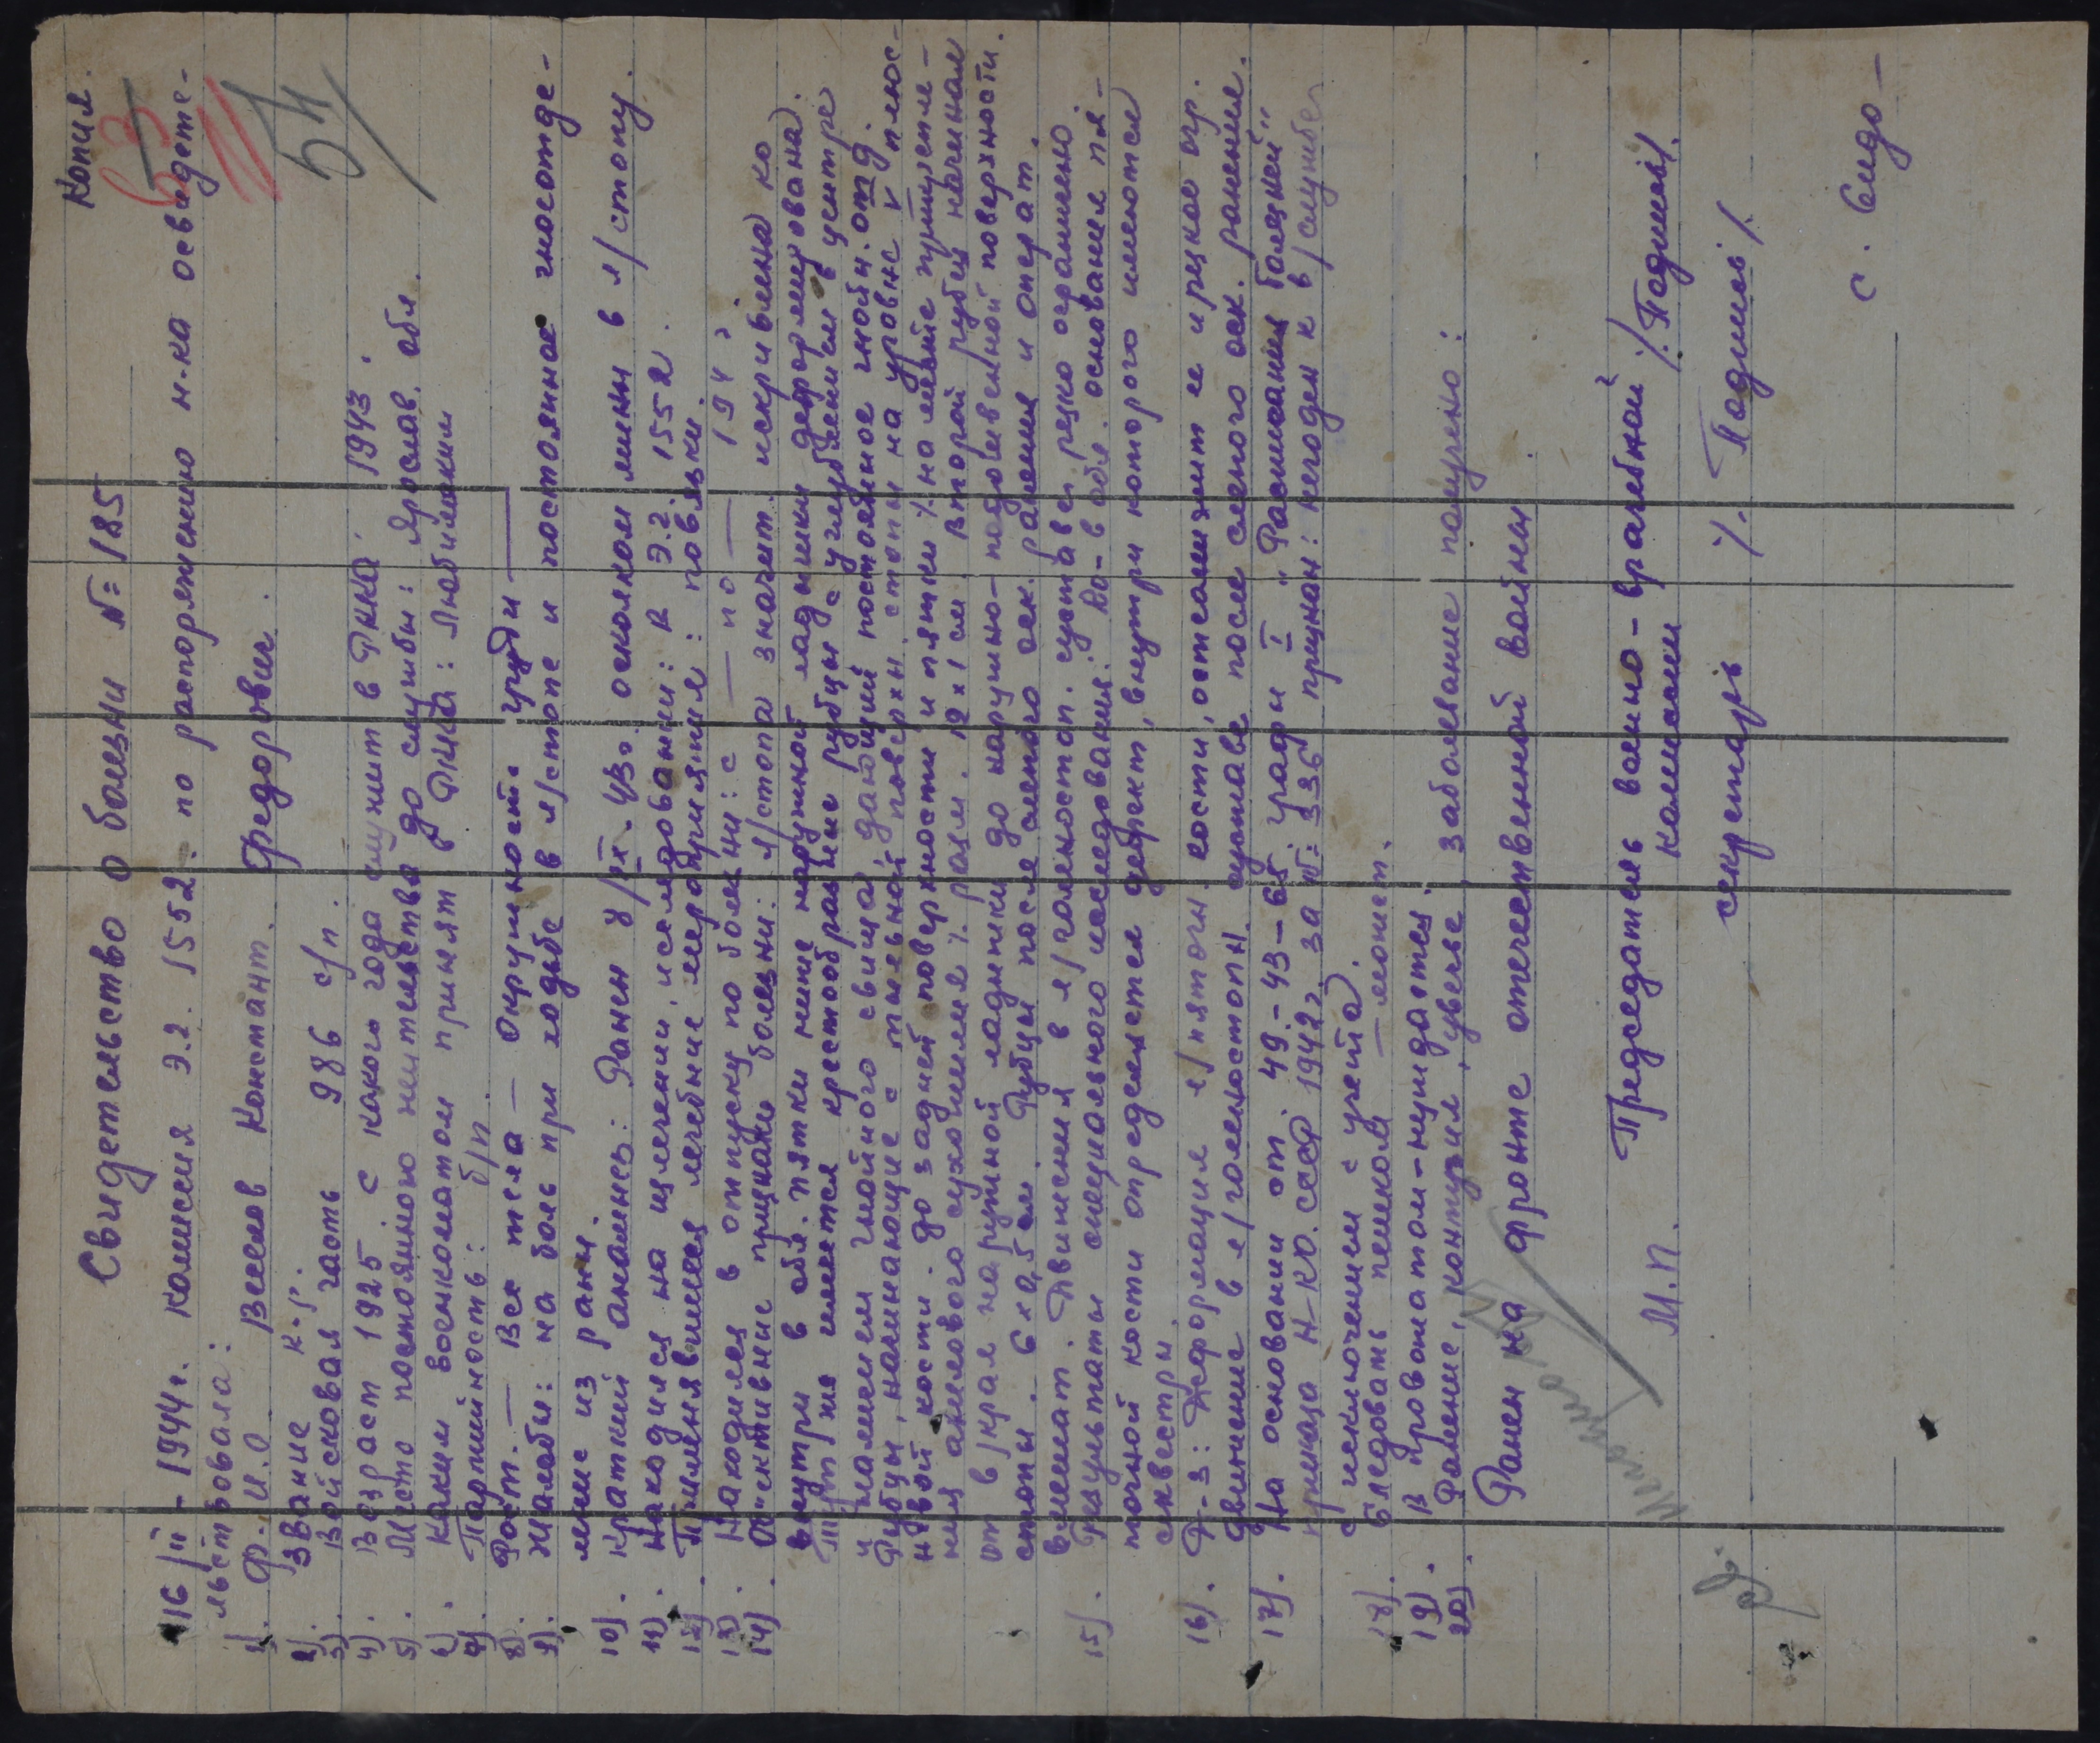 Копия.
63
54
Свидетельство о болезни №: 185
16/II - 1944 г. комиссия Э.Г. 1552. по распоряжению н-ка освидете-
льствовала:
1). Ф.И.О Веселов Констант. Федорович.
2). Звание к-р.
3). Войсковая часть 986 с/п.
4). Возраст 1925. с какого года служит в РККА. 1943.
5). Место постоянного жительства до службы: Ярослав. обл.
6). Каким военкоматом принят в РККА: Любимским
7). Партийность: б/п.
8). Рост. — Вес тела — Окружность груди —
9). Жалобы: на боль при ходьбе в л/стопе и постоянное гноеотде-
ление из раны.
10). Краткий анамнез: Ранен 8/IX-43г. осколком мины в л/стопу.
11). Находился на излечении, исследовании: в Э.Г. 1552.
12). Применявшиеся лечебные мероприятия: повязки.
13). Находился в отпуску по болезни: с — по — 194 г.
14). Объективные признаки болезни: л/стопа значит. искривлена ко
внутри в обл. пятки ниже наружной лодыжки деформирована.
Тут же имеется крестообразные рубцы с углублением в центре
и наличием гнойного свища, дающий постоянное гнойн. отд.
Рубцы, начинающие с тыльной поверхн. стопы на уровне V плюс-
невой кости. до задней поверхности и пятки /. на месте прикрепле-
ния ахиллового сухожилия /. разм. 12 х 1 см. Второй рубец начиная
от в/края наружной лодыжки до наружно- подошвенной поверхности.
стопы. 6 х 0,5 см. Рубцы после слепого оск. ранения и операт.
вмешат. Движения в л/голеностоп. суставе резко ограничено
15). Результаты специального исследования: Ro- в обл. основания пя-
точной кости определяется дефект, внутри которого имеются
секвестры.
16). Д-з: Деформация л/пяточн. кости, остеомиэлит ее и резкое огр.
движение в л/голеностопн. суставе после слепого оск. ранения.
17). На основании ст. 49.-43-65 графы II "Расписания болезней"
приказа Н-КО. СССР. 1942 г. за №: 336 признан: негоден к в/службе
с исключением с учета.
18). Следовать пешком — может.
19). В провожатом-нуждается.
20). Ранение, контузия, увечье, заболевание получено:
Ранен на фронте отечественной войны
М.П. Председатель военно-врачебной /.Подпись/.
комиссии
секретарь /. Подпись /.
с. Сидо-